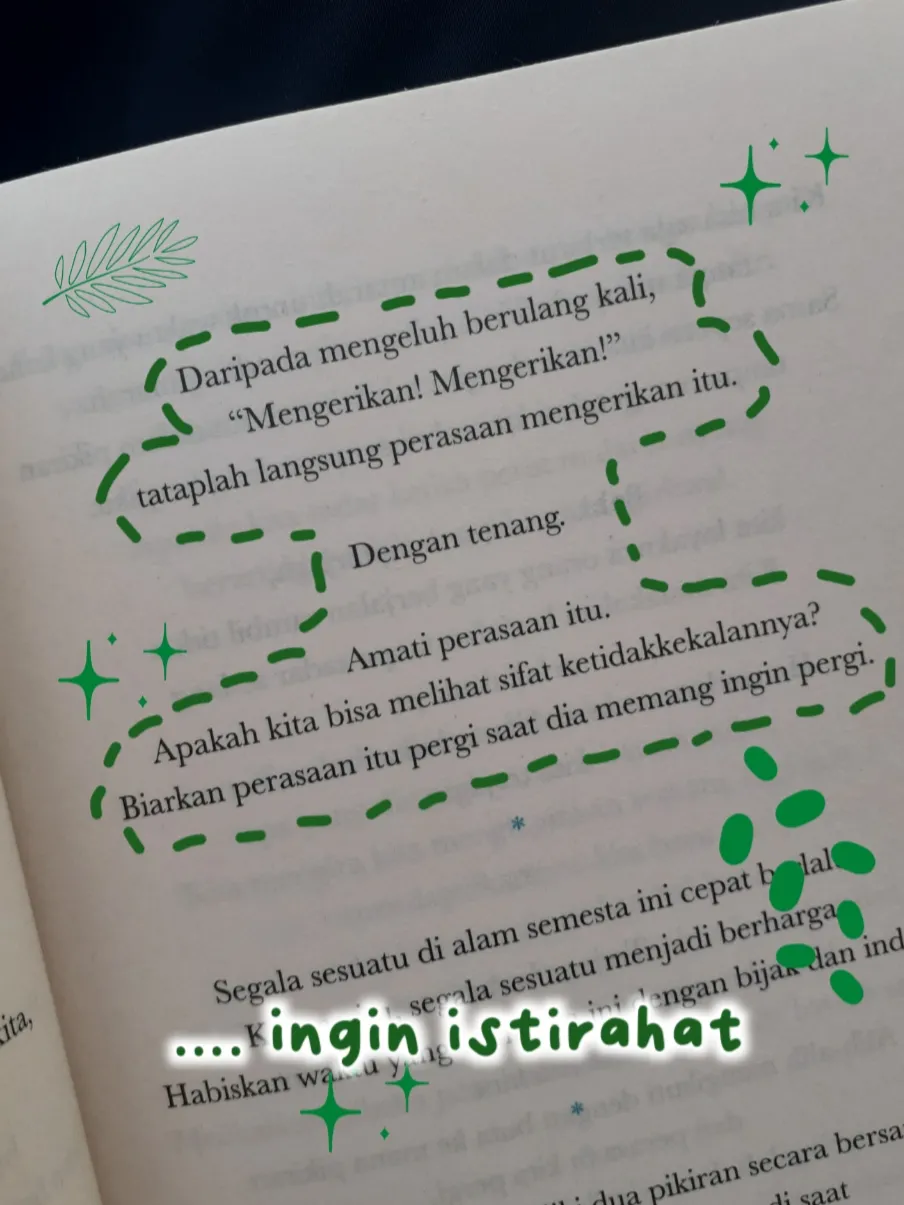 Daripada mengeluh berulang kali,
“Mengerikan! Mengerikan!”
tataplah langsung perasaan mengerikan itu.
Dengan tenang.
Amati perasaan itu.
Apakah kita bisa melihat sifat ketidakkekalannya?
Biarkan perasaan itu pergi saat dia memang ingin pergi.
*
Segala sesuatu di alam semesta ini cepat
segala sesuatu menjadi berharga
ini dengan bijak dan
.... ingin istirahat
Habiskan
*
dua pikiran secara
di saat